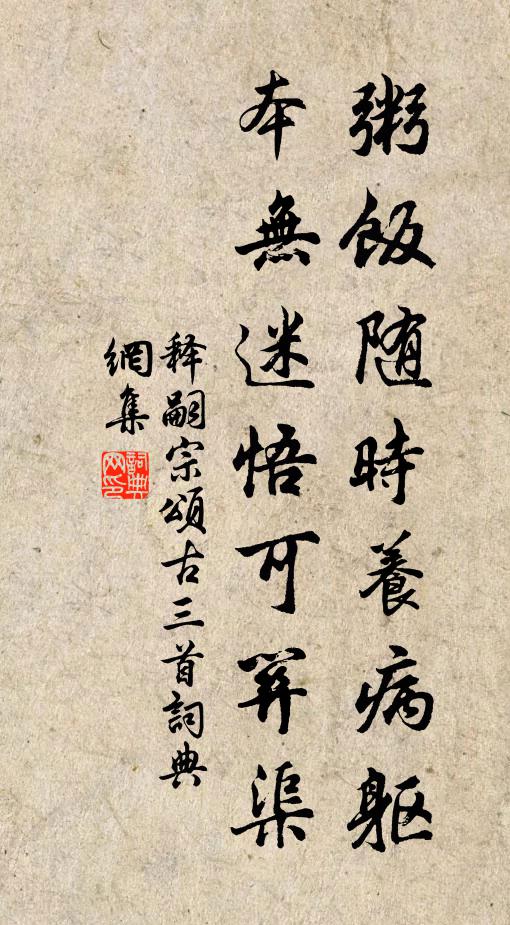 粥飯随時養病躯
本無迷悟可筭渠
释嗣宗頌古三首詞典
網集
詞典
网印